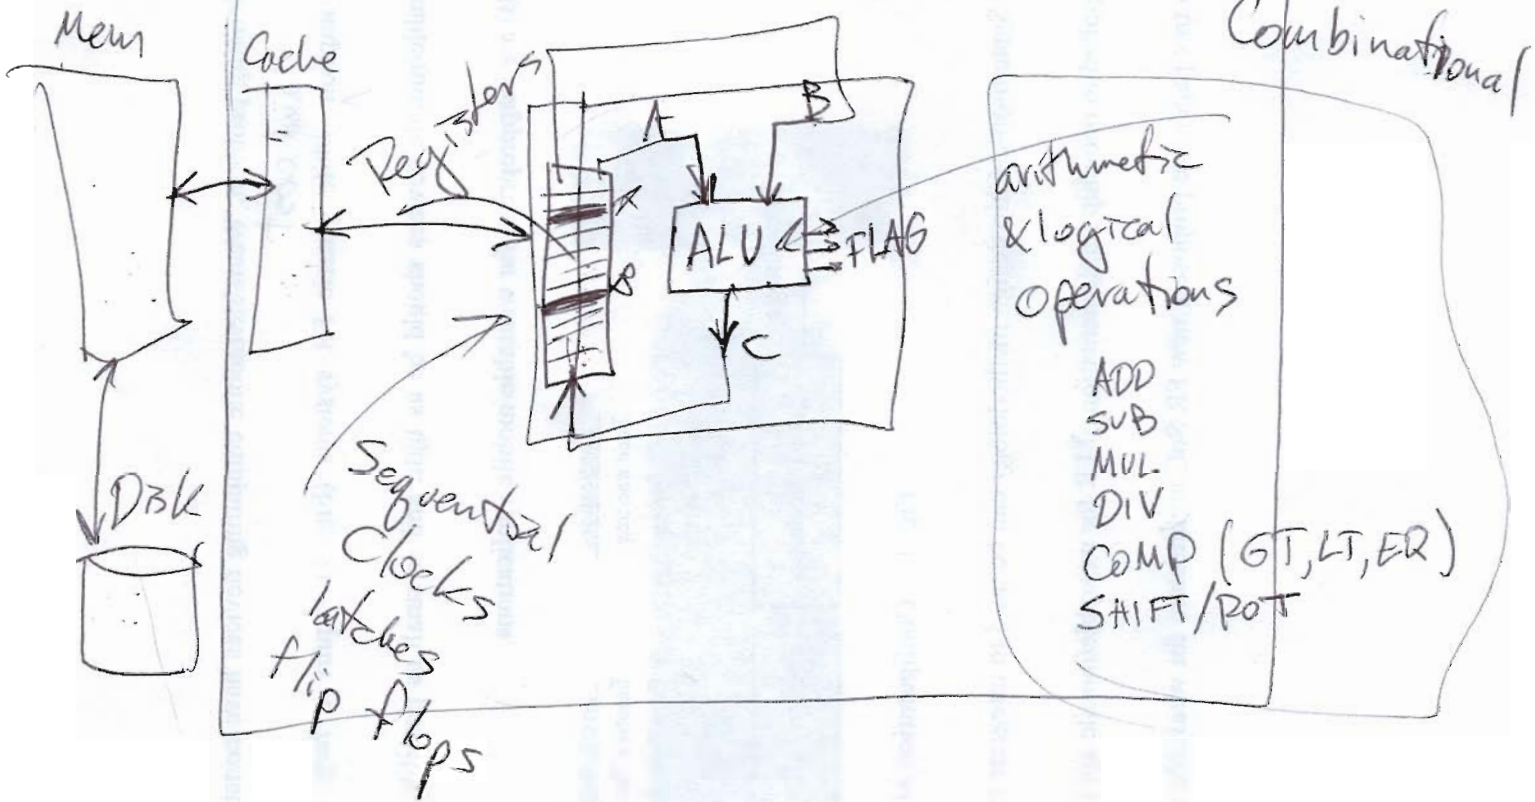 Mem
Cache
Registers
A
B
A
B
ALU
FLAG
C
Disk
Sequential
Clocks
latches
flip flops
Combinational
arithmetic
& logical
operations
ADD
SUB
MUL
DIV
COMP (GT, LT, EQ)
SHIFT/ROT